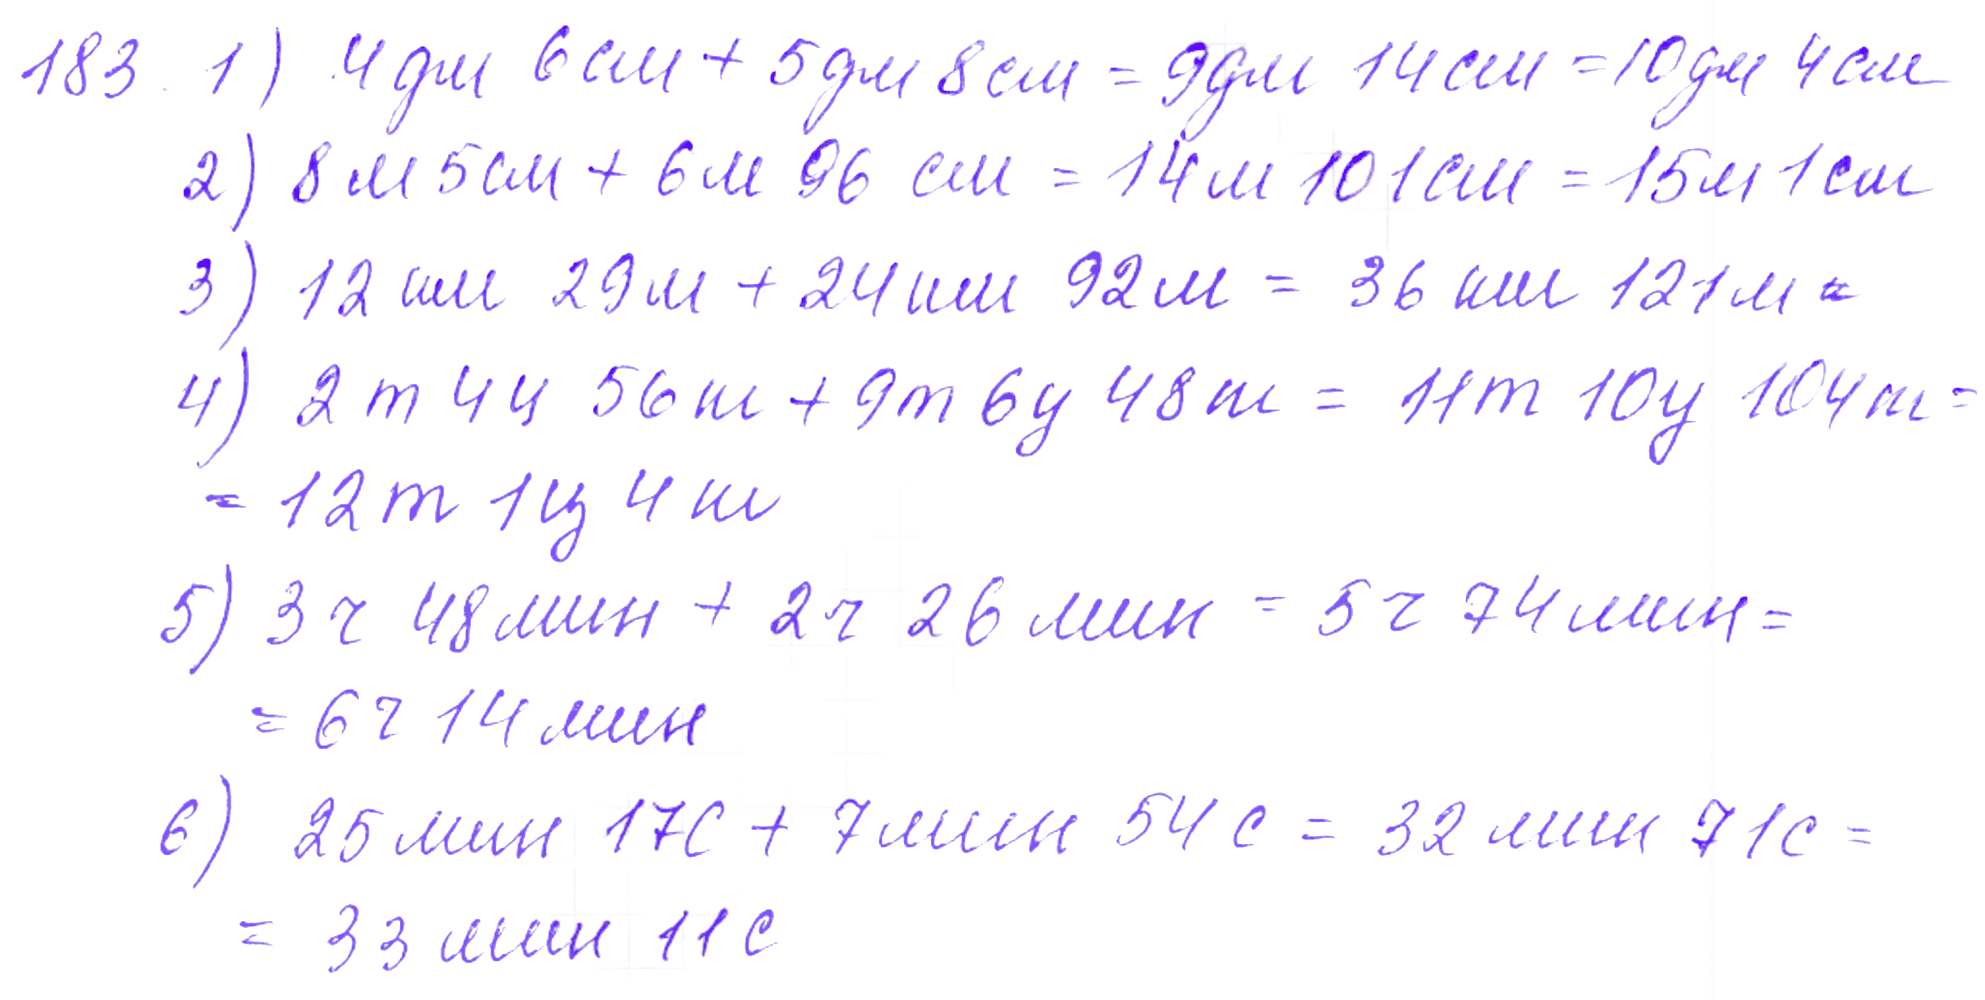 183 1) 4дм 6см + 5дм 8см = 9дм 14см = 10дм 4см
2) 8м 5см + 6м 96 см = 14м 101см = 15м 1см
3) 12 км 29м + 24км 92м = 36 км 121м =
4) 2т 4ц 56кг + 9т 6ц 48кг = 11т 10ц 104кг =
= 12т 1ц 4кг
5) 3ч 48мин + 2ч 26мин = 5ч 74мин =
= 6ч 14мин
6) 25мин 17с + 7мин 54с = 32мин 71с =
= 33мин 11с